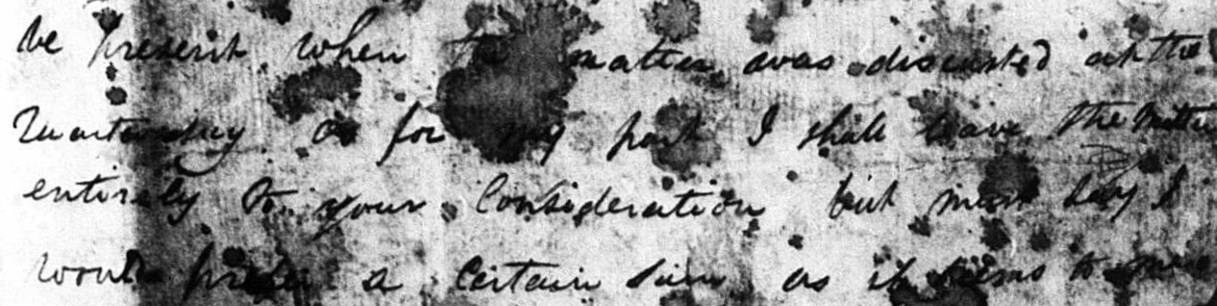 be present when the matter was discussed at the
Quarterday as for my part I shall leave the matter
entirely to your Consideration but must say I
would prefer a Certain Sum as it seems to me